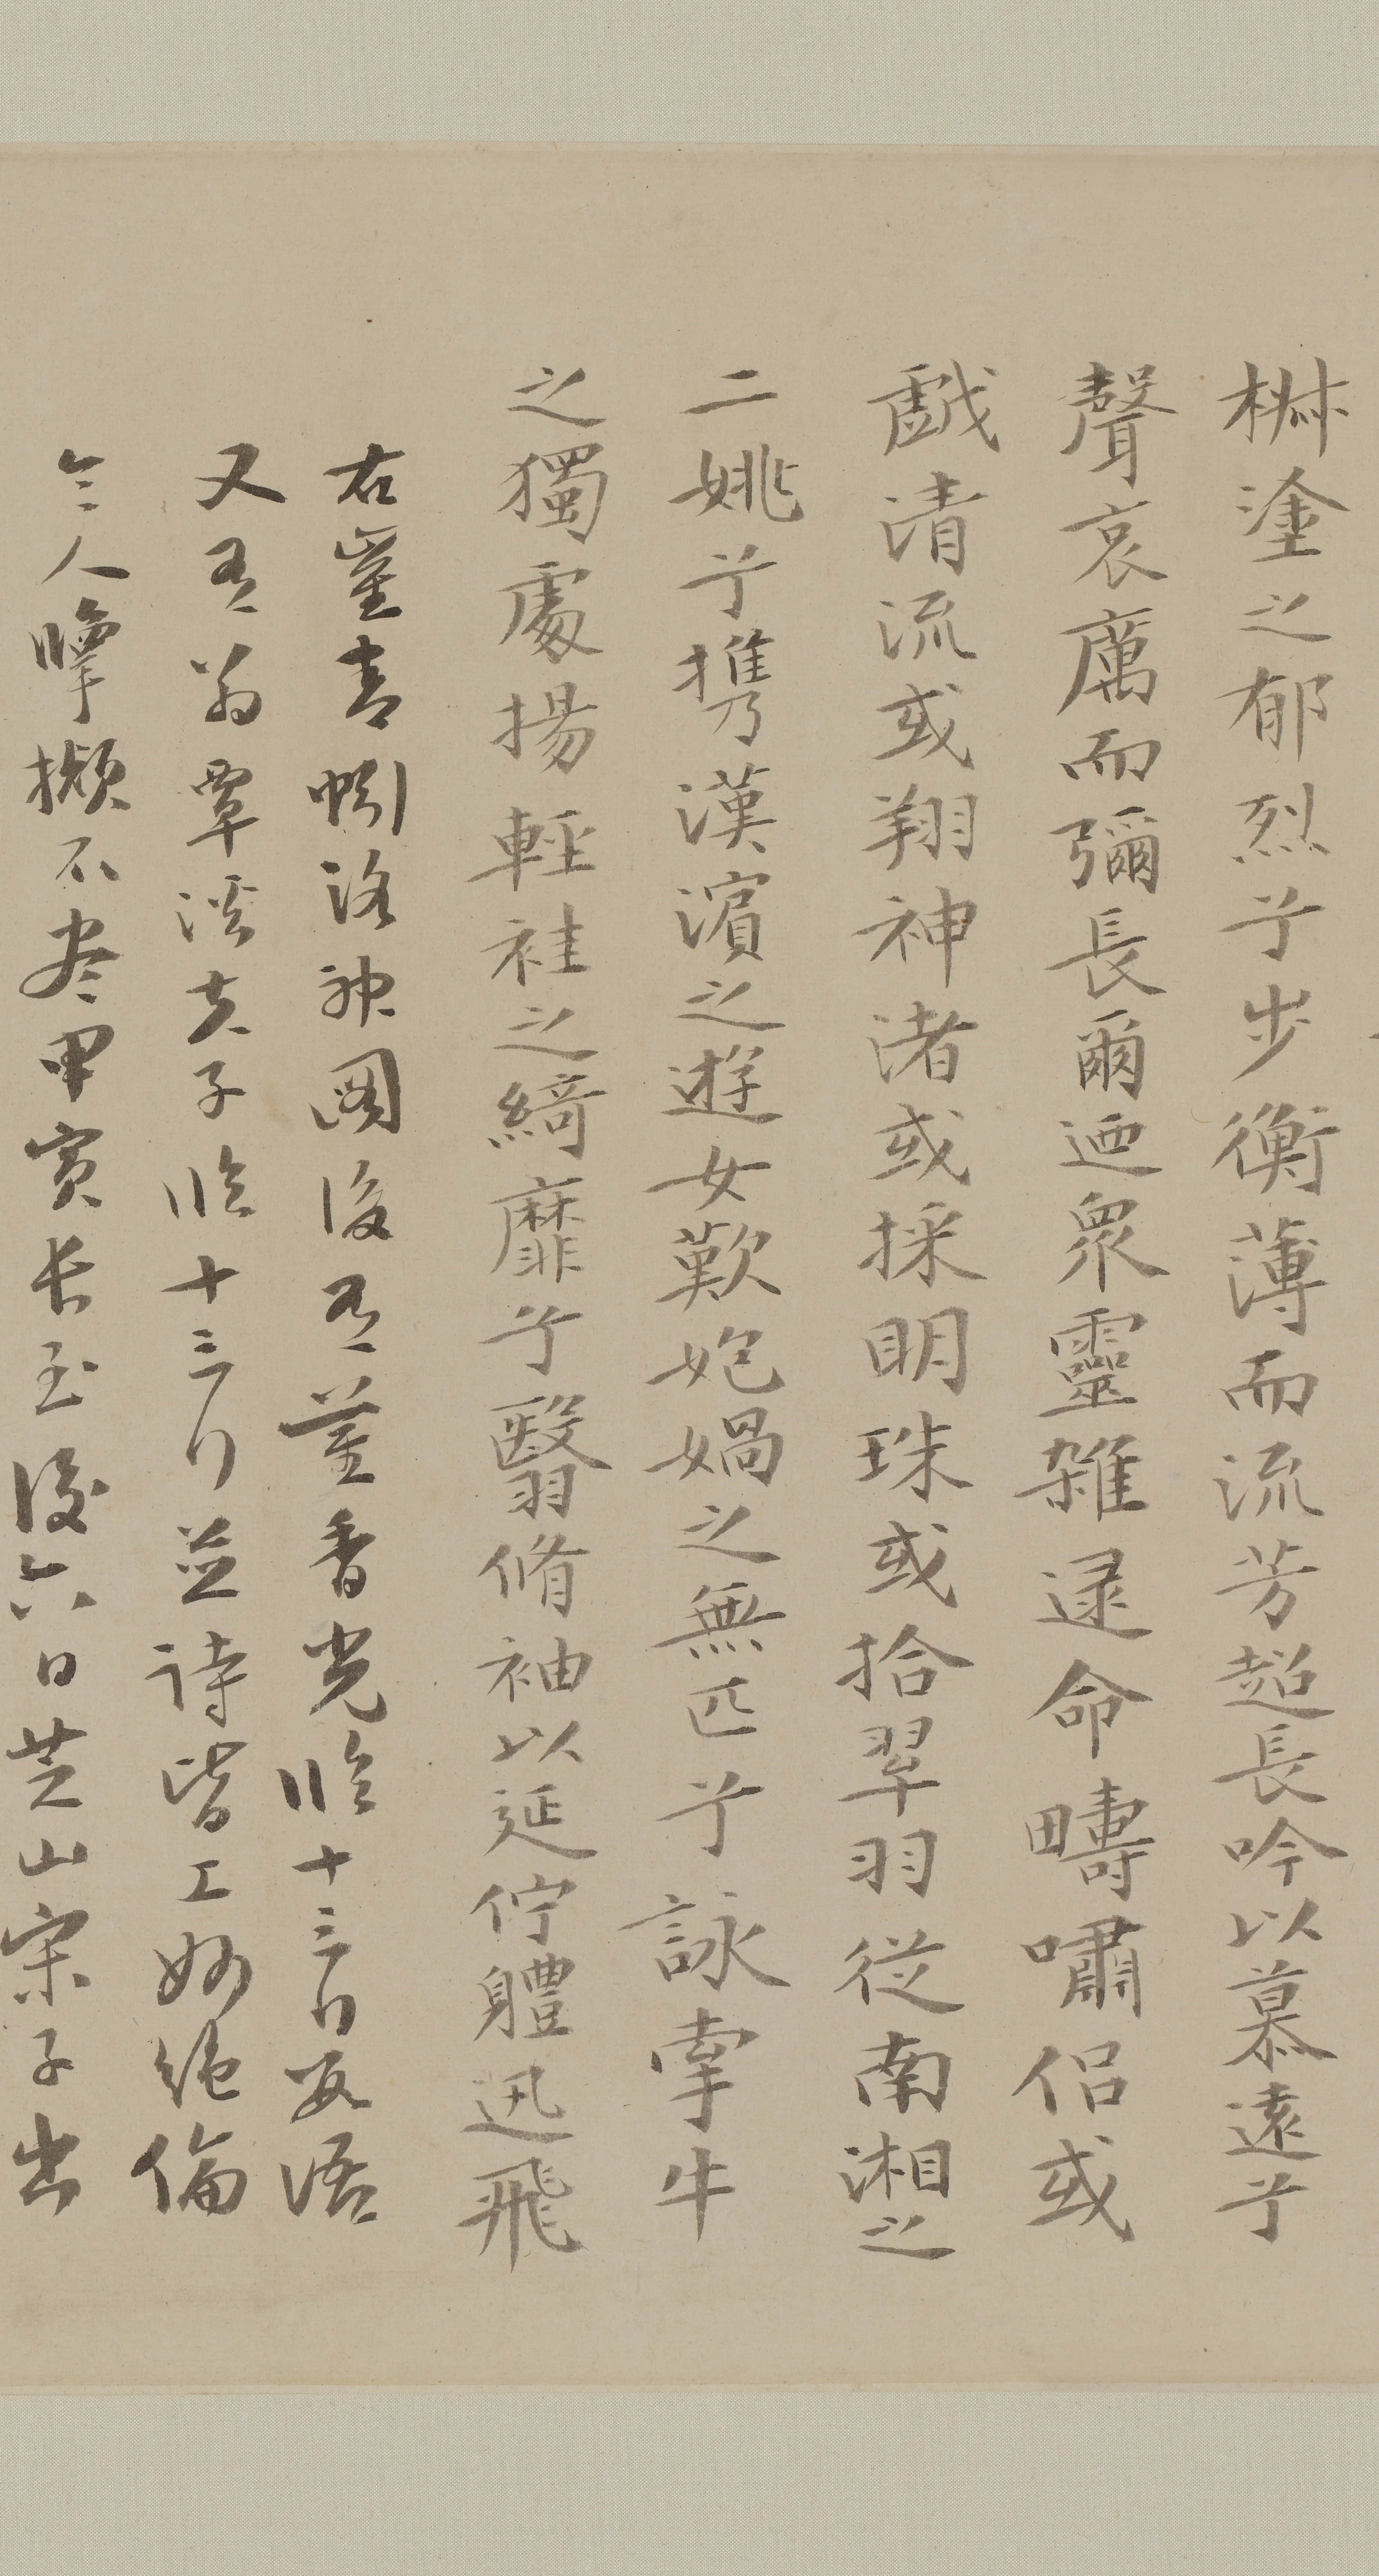 椒塗之郁烈兮步衡薄而流芳超長吟以慕遠兮
聲哀厲而彌長爾迺衆靈雜遝命疇嘯侣或
戲清流或翔神渚或採明珠或拾翠羽從南湘之
二姚兮攜漢濱之遊女歎匏媧之無匹兮詠牽牛
之獨處揚輕袿之綺靡兮翳脩袖以延佇體迅飛
右崔青蚓洛神圖後有董香光臨十三行數語
又有翁覃溪夫子臨十三行並詩皆工妙絶倫
令人擬不盡甲寅長至後六日芝山宋子書